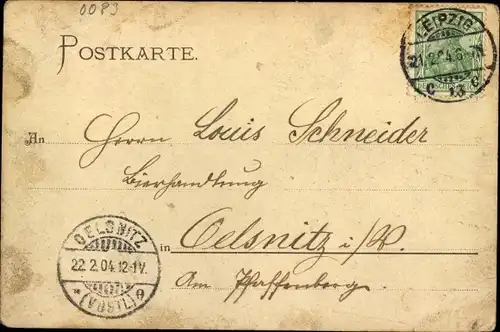 0083
POSTKARTE.
LEIPZIG
21.2.04.6-7N
C 13 C
An Herrn Louis Schneider
Bierhandlung
in Oelsnitz i/V.
Am Pfaffenberg.
OELSNITZ
22.2.04.12-1V.
* (VOGTL) e